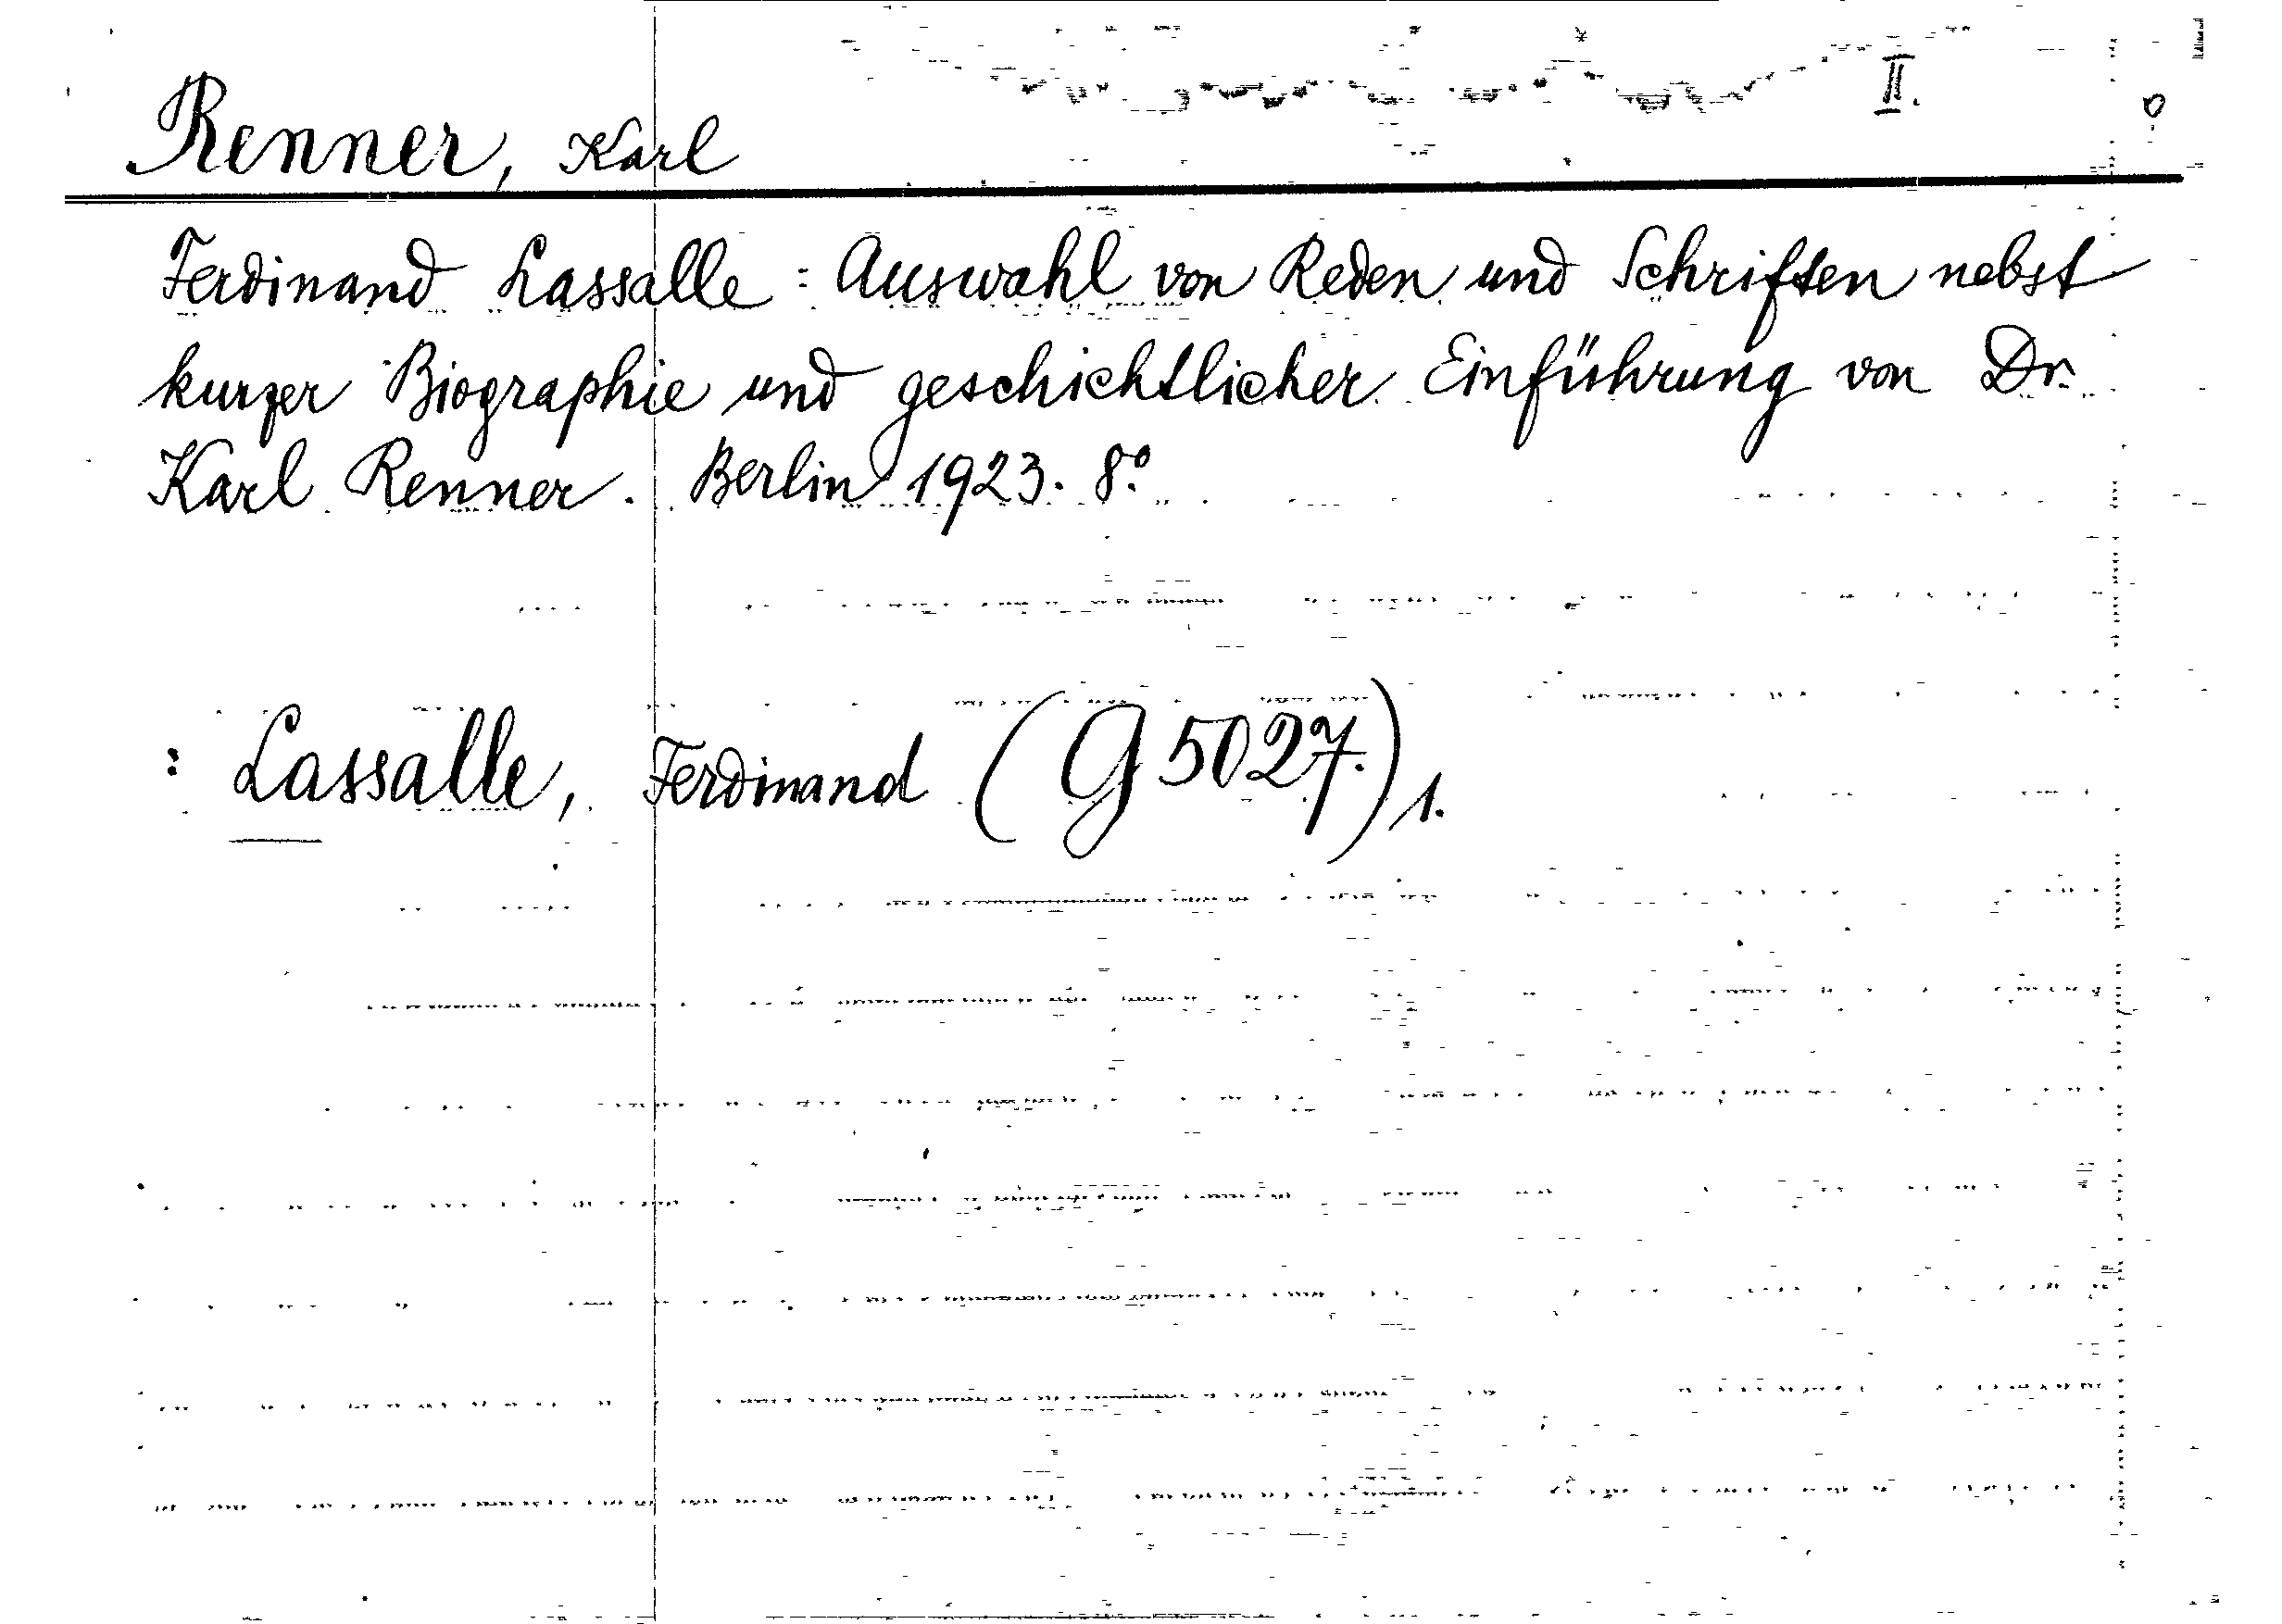 Renner, Karl II.
Ferdinand Lassalle : Auswahl von Reden und Schriften nebst
kurzer Biographie und geschichtlicher Einführung von Dr.
Karl Renner. Berlin 1923. 8°
: Lassalle, Ferdinand (G 5027.) 1.